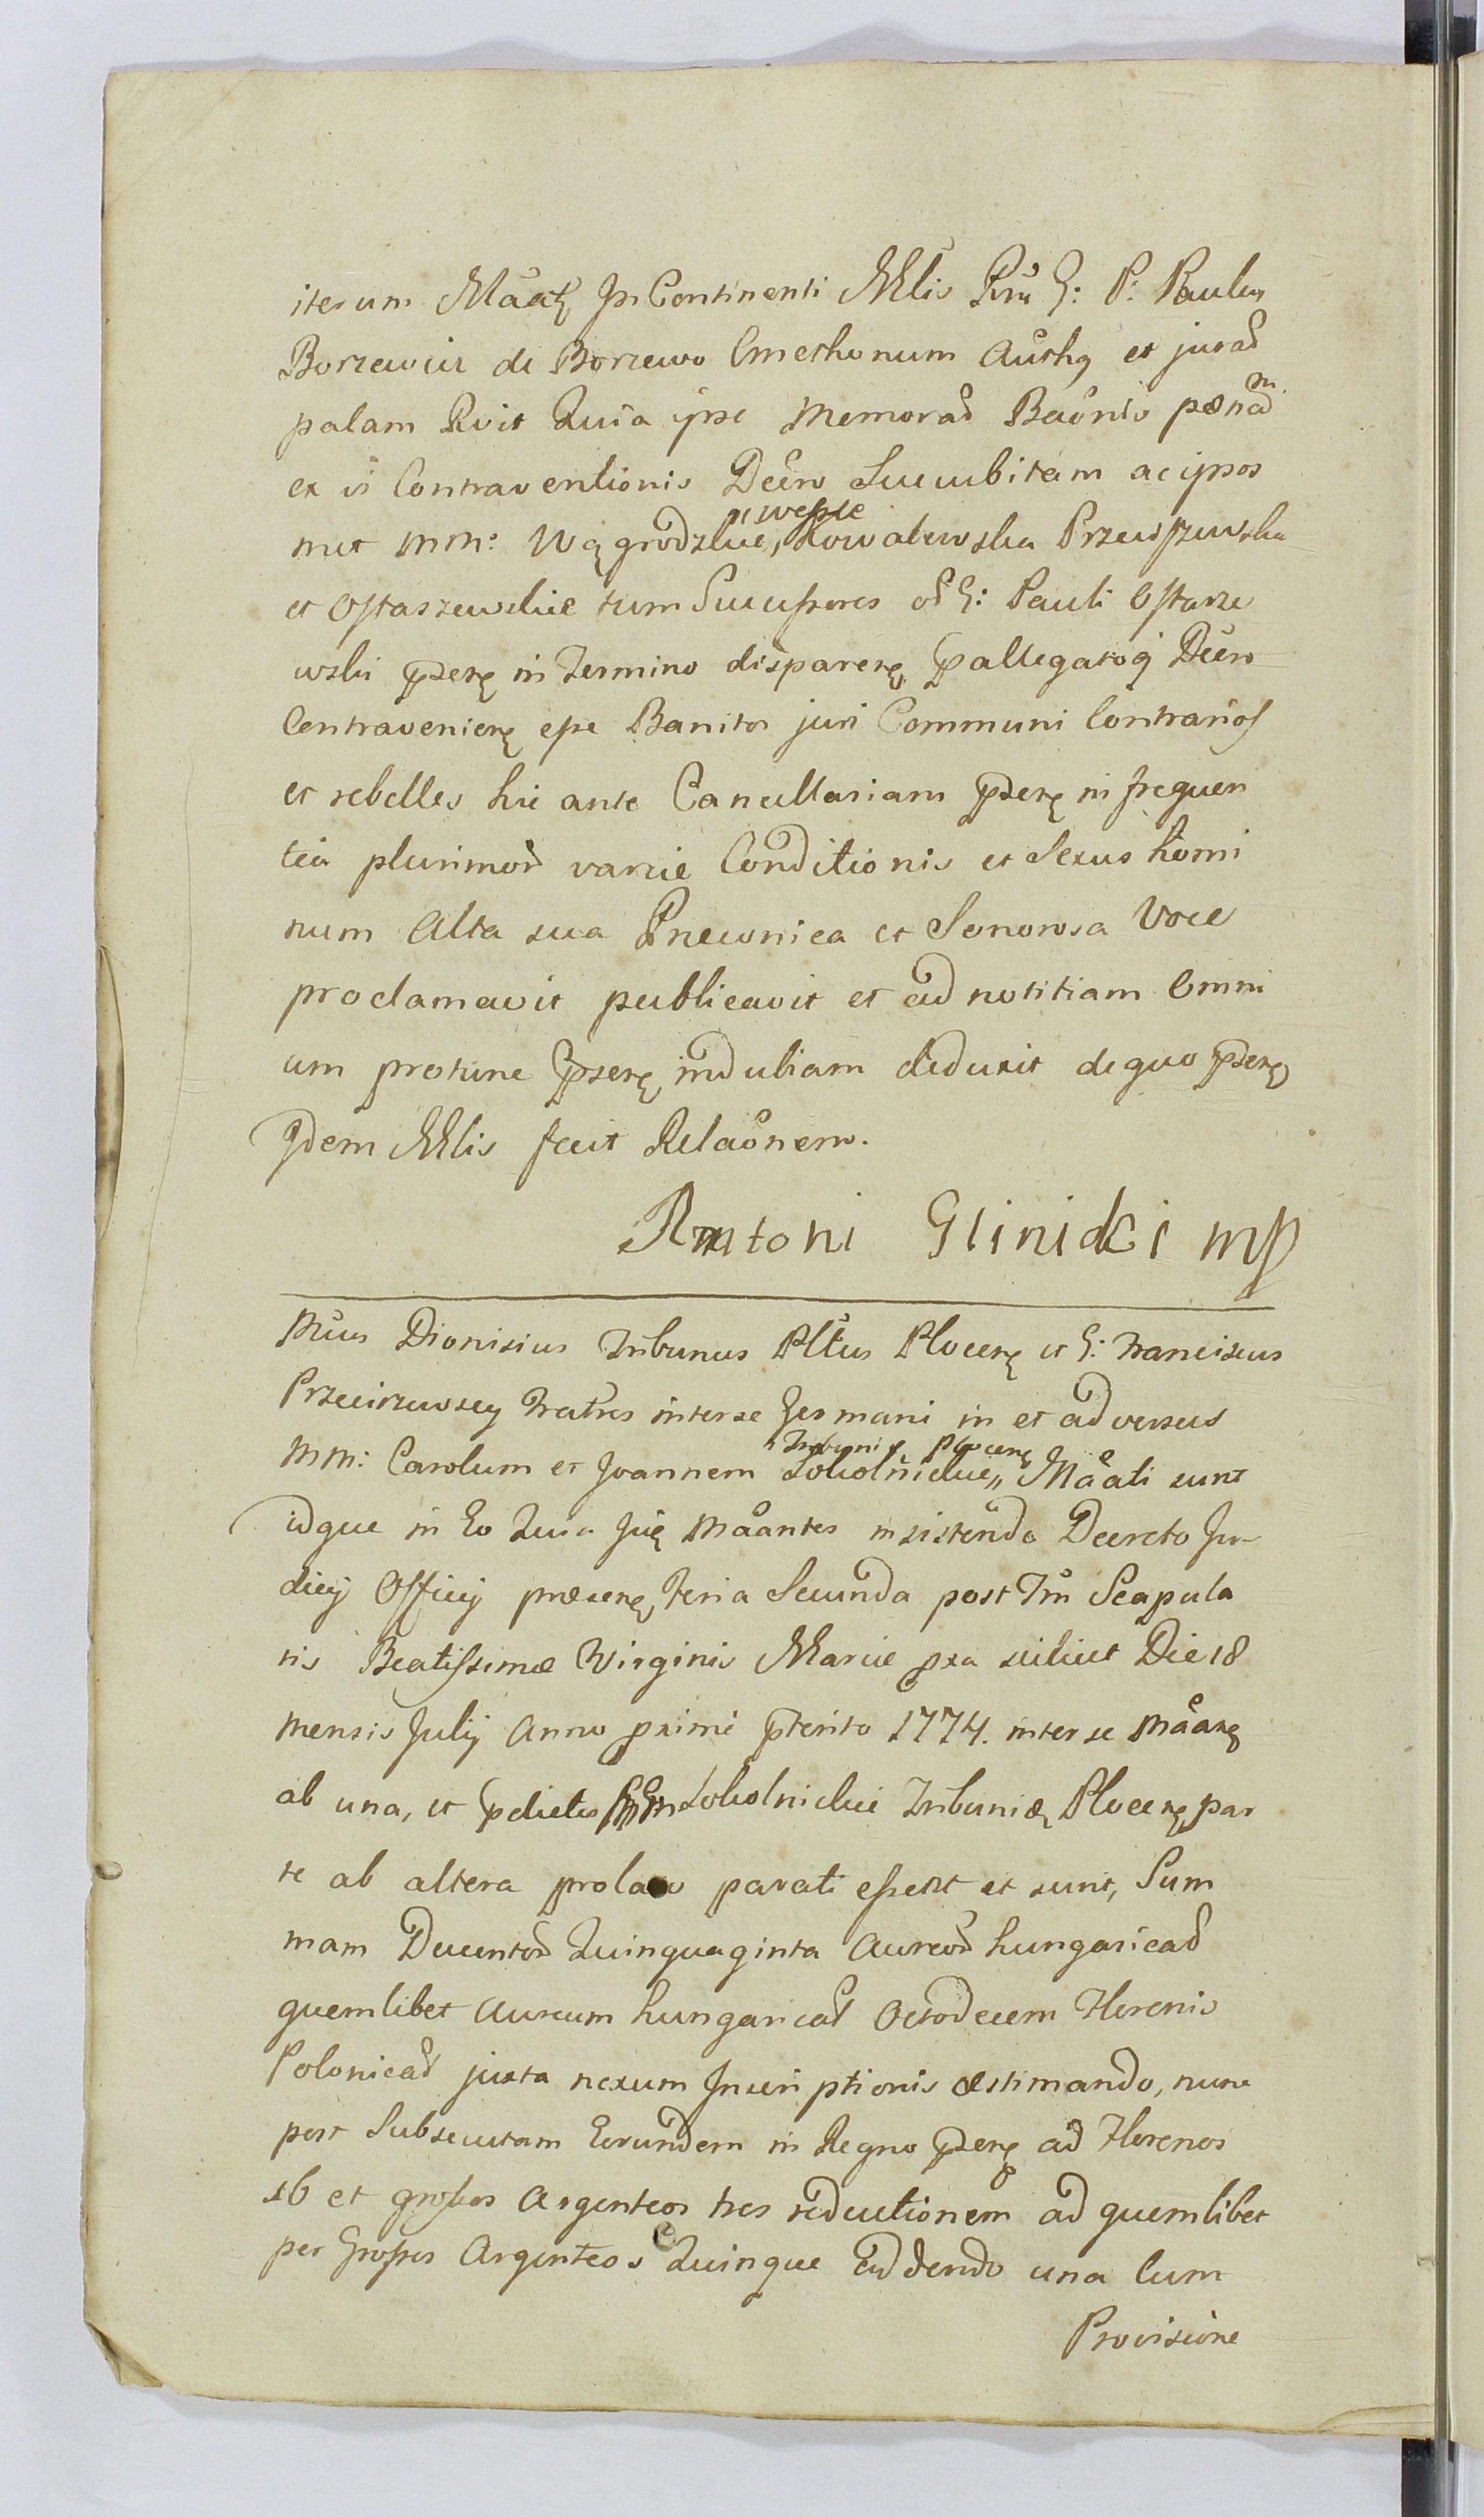 iterum Mãatꝫ In Continenti Mlis Rm G: P. Paulus
Borzewicz de Borzewo Cmethonum Authꝫ et jurad
palam Rvit Quia ipse Memorad Baonis pœnam
ex vi Contraventionis Decro Sucubitam ac ipsos
met MM: Wągrodzkie, Kowalewska Przeciszewska
et Ostaszewskie tum Sucessores od G: Pauli Ostasze
wski pserꝫ in Termino disparerꝫ pallegatoq Decro
Contravenierꝫ esse Banitos juri Communi Contrarios
et rebelles hic ante Cancellariam pserꝫ in frequen
tia plurimor variæ Conditionis et Sexus homi
num Alta sua Pnewnica et Sonorosa Voce
proclamavit publicavit et ad notitiam Omni
um protunc pserꝫ indubiam deduxit de quo pserꝫ
Idem Mlis fecit Relaonem.
Antoni Glinicki mp
Mcus Dionisius Tribunus Pltus Plocenꝫ et G: Franciscus
Przeciszewscy Fratres inter se Germani in et adversus
Tribunidꝫ Plocenꝫ
MM: Carolum et Joannem Sokolnickie,, Mãati sunt
idque in Eo Quia Iiꝫ Mãantes insistendo Decreto Ju-
dicij Officij præsenꝫ, Feria Secunda post Fm Scapula
ris Beatissimæ Virginis Mariæ pxa scilicet Die 18
Mensis Julij Anno pximè pterito 1774. inter se Mãanꝫ
ab una, et pdictos MM Sokolnickie Tribunidꝫ Plocenꝫ, par
te ab altera prolato parati essent et sunt, Sum
mam Ducentor Quinquaginta Aureor hungaricad
quemlibet Aureum hungaricad Octodecem Florenis
Polonicad juxta nexum Inscriptionis æstimando, nunc
post Subsecutam Eorundem in Regno pserꝫ ad Florenos
16 et grossos Argenteos tres reductionem ad quemlibet
per Grossos Argenteos Quinque addendo una Cum
Provisione